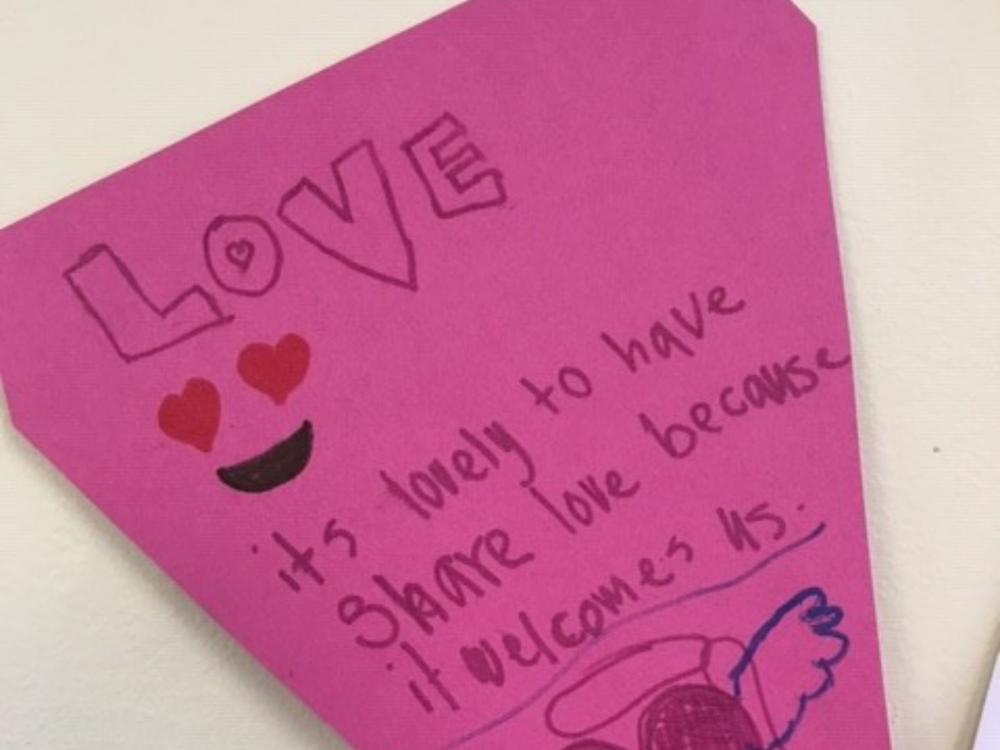 LOVE
its lovely to have
share love because
it welcomes us.